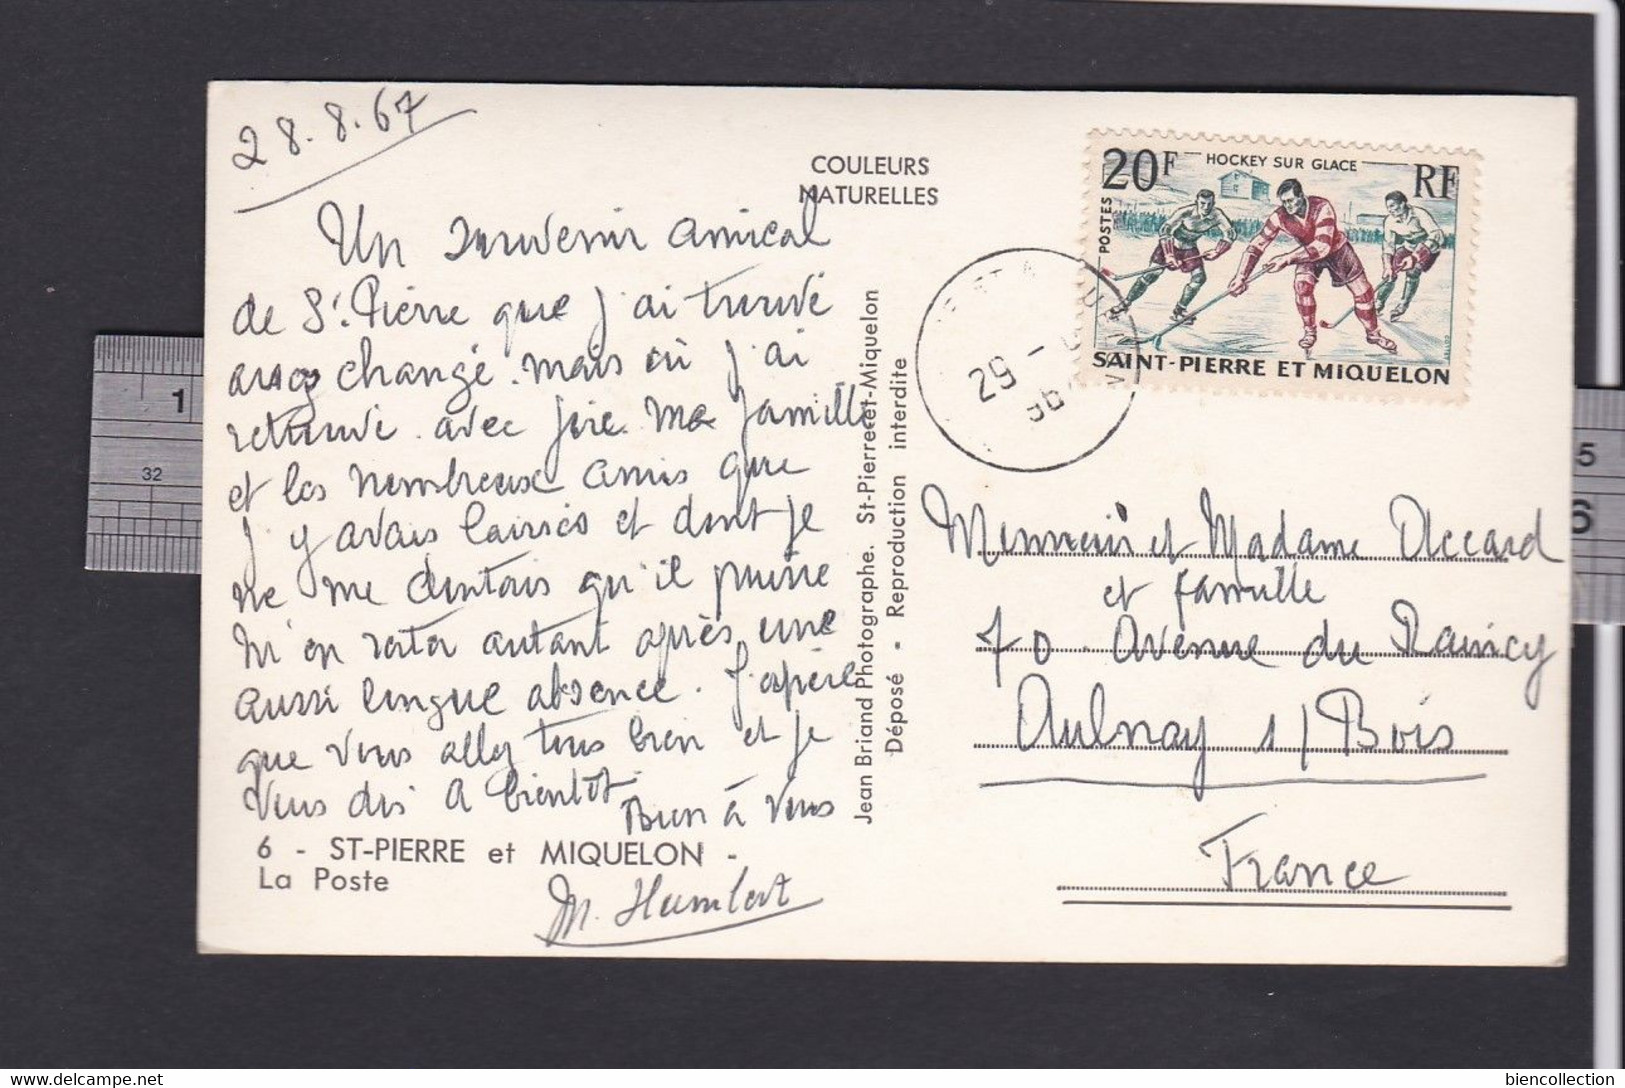 28.8.67
COULEURS
NATURELLES
20F HOCKEY SUR GLACE RF
POSTES
SAINT-PIERRE ET MIQUELON
29 -
Un souvenir amical
de St. Pierre que j'ai trouvé
assez changé. mais où j'ai
retrouvé avec joie ma famille
et les nombreux amis que
j'y avais laissés et dont je
ne me doutais qu'il puisse
m'en rester autant après une
aussi longue absence. J'espère
que vous allez tous bien et je
vous dis à bientôt.
Bien à vous
M. Humbert
6 - ST-PIERRE et MIQUELON -
La Poste
Jean Briand Photographe. St-Pierre-et-Miquelon
Déposé - Reproduction interdite
Monsieur et Madame Accard
et famille
70 Avenue du Raincy
Aulnay s/ Bois
France
1
32
5
6
delcampe.net
biencollection